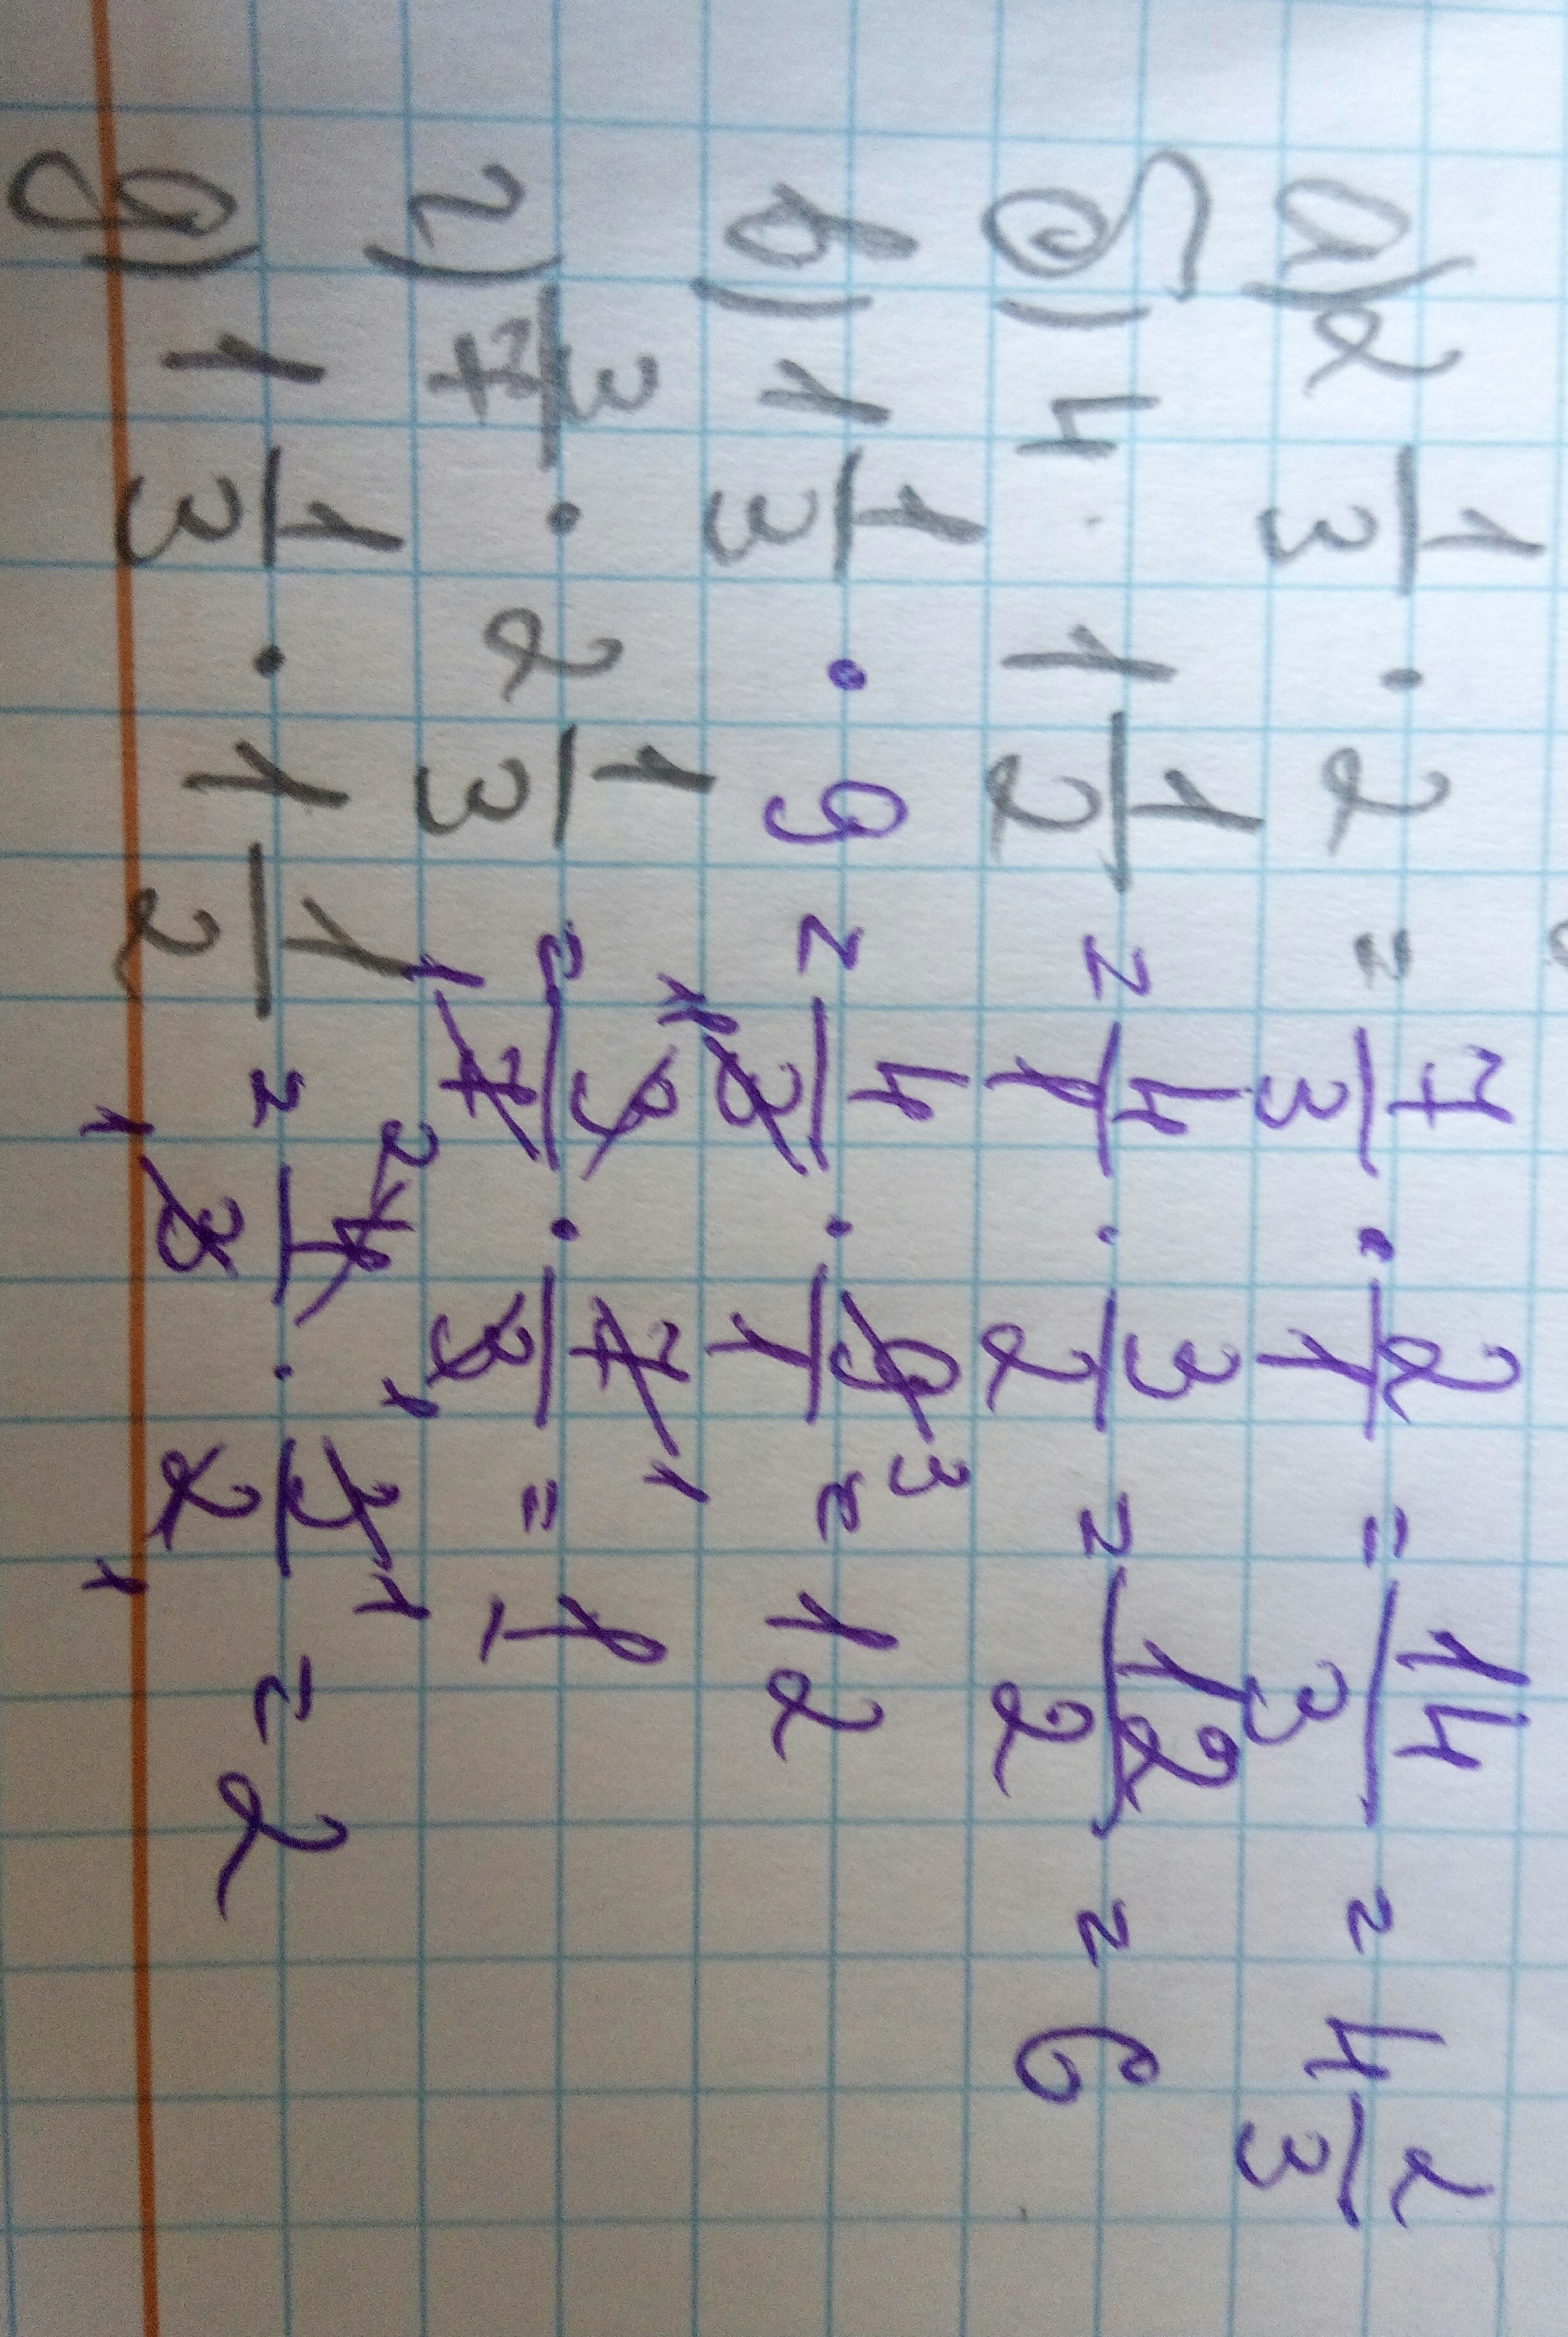 а) 2 1/3 · 2 = 7/3 · 2/1 = 14/3 = 4 2/3
б) 4 · 1 1/2 = 4/1 · 3/2 = 12/2 = 6
в) 1 1/3 · 9 = 4/3 · 9/1 = 12
г) 3/7 · 2 1/3 = 3/7 · 7/3 = 1
д) 1 1/3 · 1 1/2 = 4/3 · 3/2 = 2